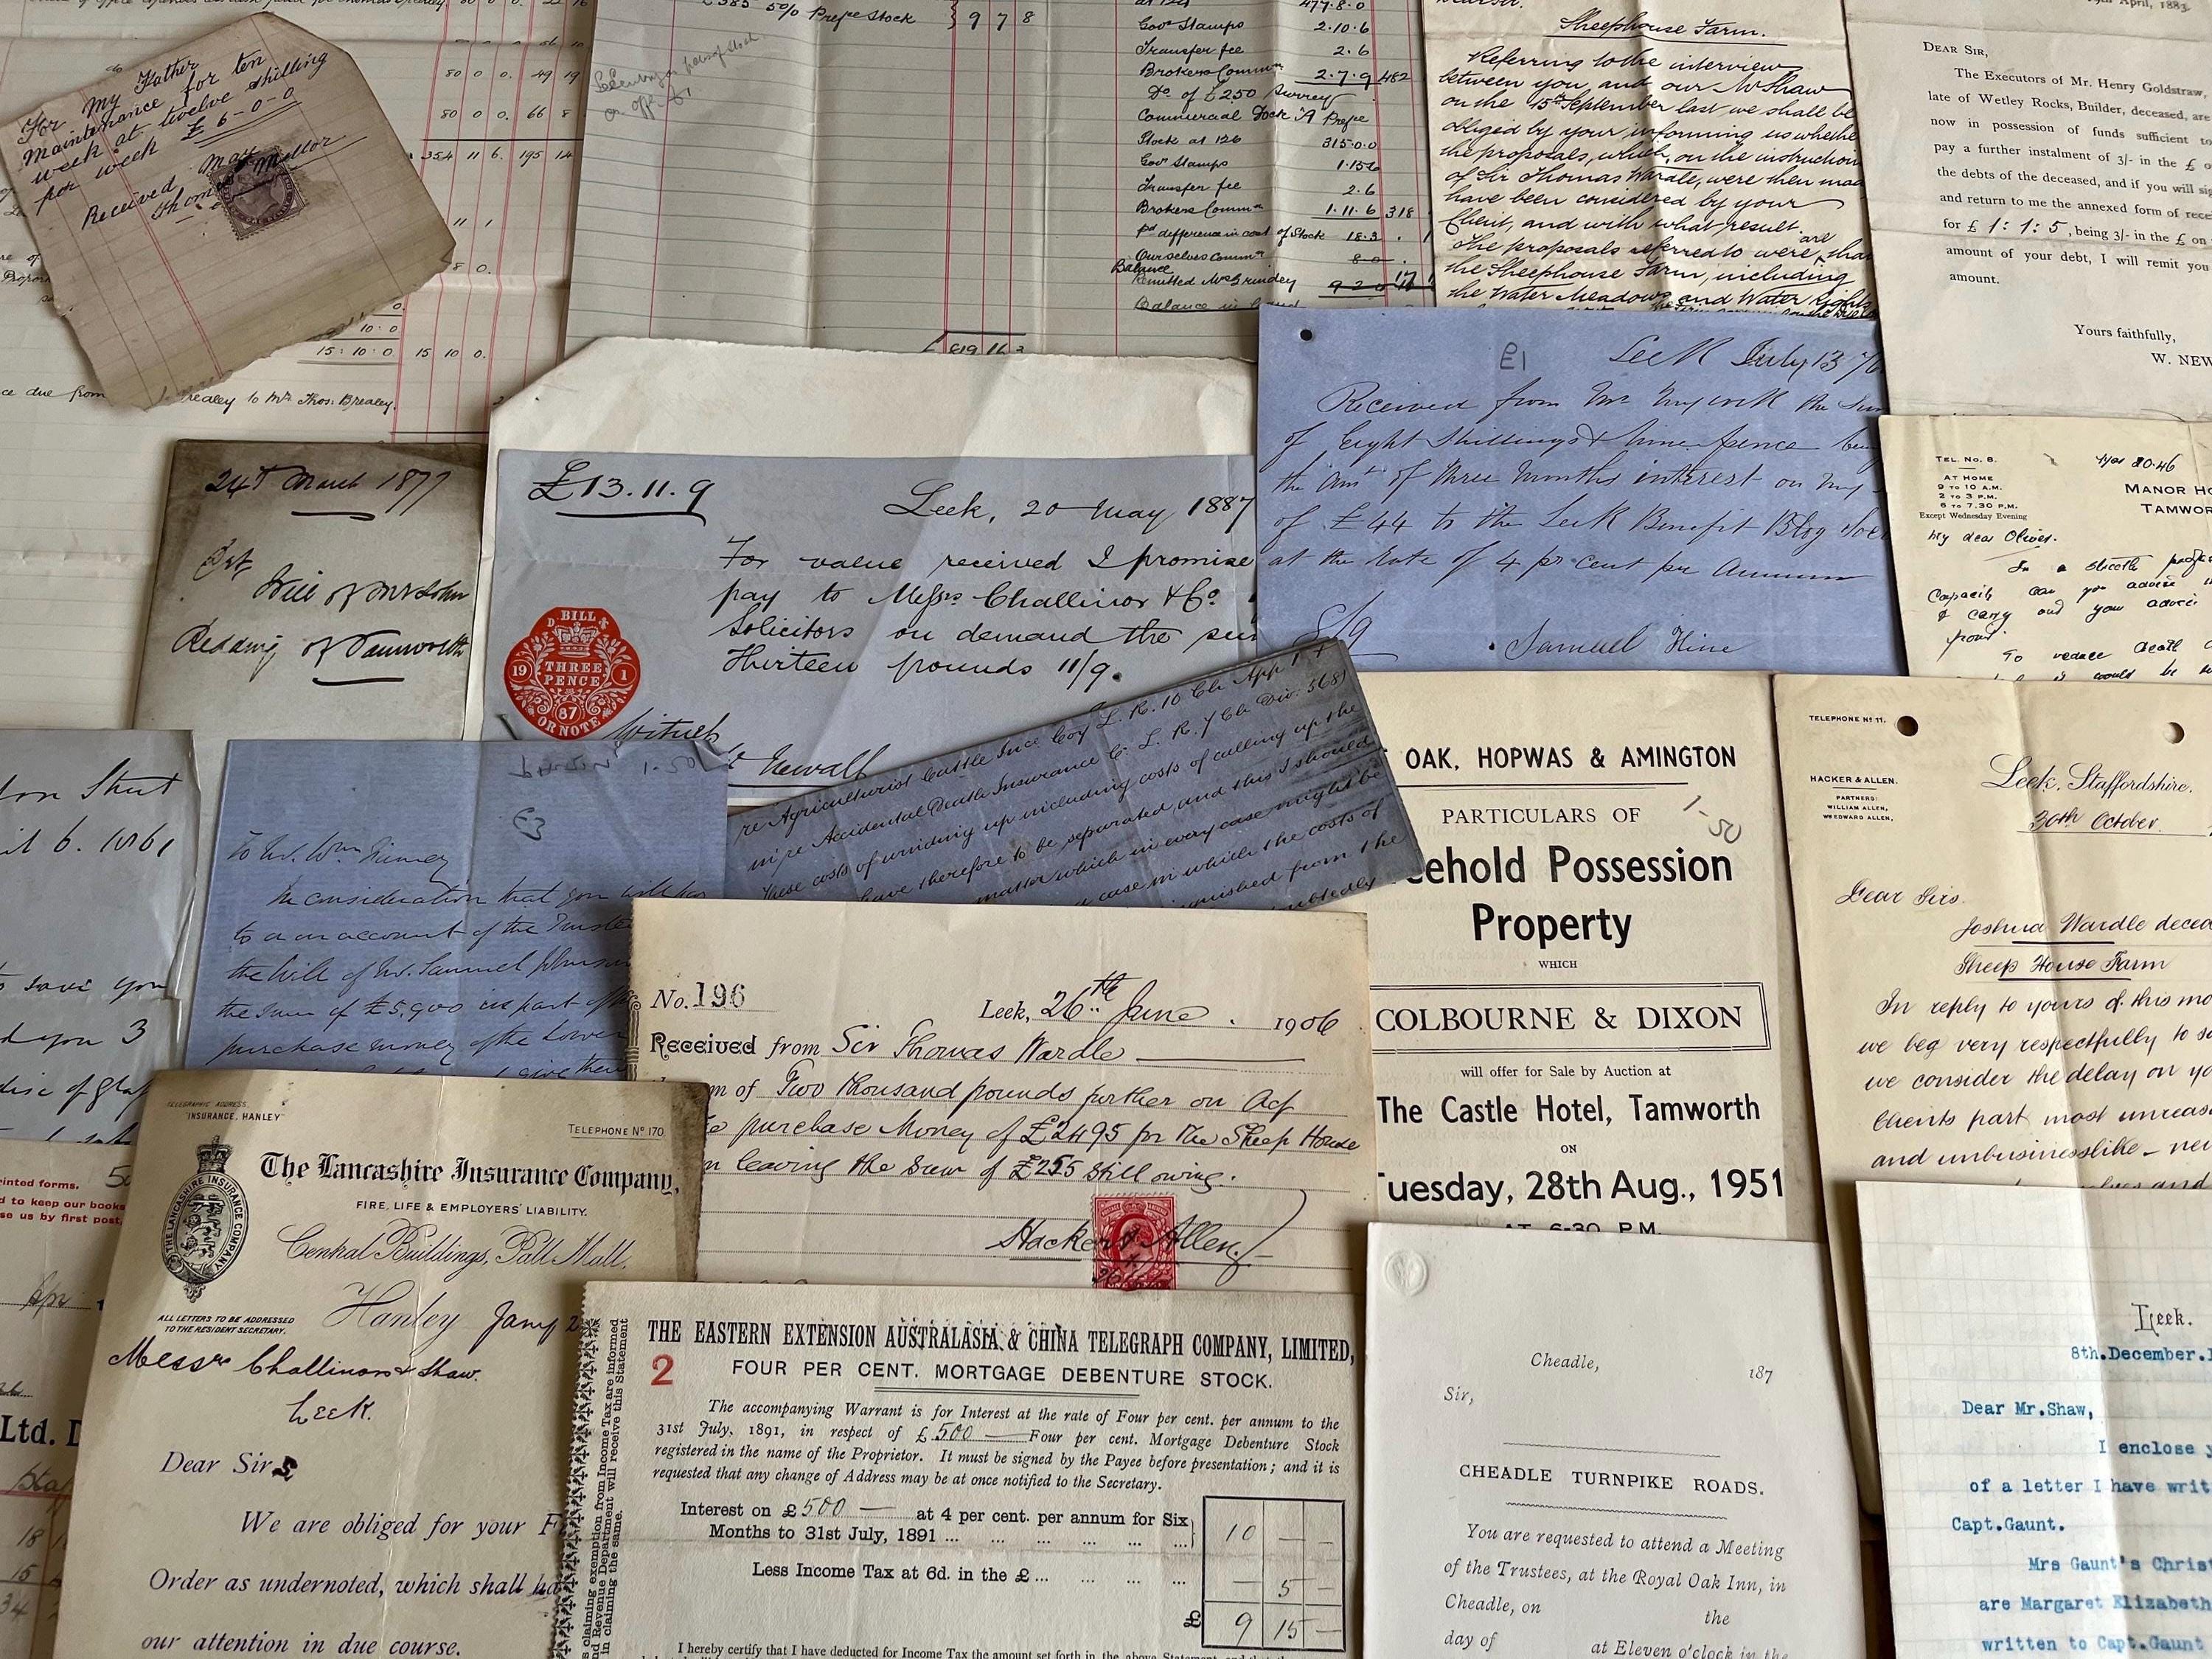 For My Father
Maintainance for ten
week at twelve shilling
per week £6-0-0
Received May
Thomas Mellor
80 0 0. 49 19
80 0 0. 66 8
354 11 6. 195 14
11 1
8 0.
10:0
15:10:0 15 10 0.
Brealey to Mr Thos. Brealey.
5% Prefce Stock 9 7 8
£ 819 16 3
477.8.0
Govt Stamps 2.10.6
Transfer fee 2.6
Brokers Commn 2.7.9 482
Do of £250 Surrey
Commercial Dock "A Prefce
Stock at 126 315.0.0
Govt Stamps
Transfer fee 2.6
Brokers Commn 1.11.6 318
Pd difference in cost of Stock 18.3
Ourselves Commn
Balance
Remitted Mr Grindey
Balance in hand
Sheephouse Farm.
Referring to the interview
between you and our Mr Shaw
on the 15th September last we shall be
obliged by your informing us whether
the proposals, which, on the instruction
of Sir Thomas Wardle, were then made
have been considered by your
Client, and with what result.
The proposals referred to were, are that
the Sheephouse Farm, including
the Water Meadows and Water Rights
April, 1883.
DEAR SIR,
The Executors of Mr. Henry Goldstraw,
late of Wetley Rocks, Builder, deceased, are
now in possession of funds sufficient to
pay a further instalment of 3/- in the £ o
the debts of the deceased, and if you will sig
and return to me the annexed form of rece
for £ 1:1:5, being 3/- in the £ on
amount of your debt, I will remit you
amount.
Yours faithfully,
W. NEW
£1
Leek July 13
Received from Mr Mycock the Sum
of Eight Shillings & Nine pence being
the Amt of three Months interest on my
of £44 to the Leek Benefit Bldg Soc
at the rate of 4 pr cent per Annum
8/9
Samuel Hine
24th March 1877
Dft
Will of Mr John
Redding of Tamworth
£13.11.9
Leek, 20 May 1887
For value received I promise
pay to Messrs Challinor & Co.
Solicitors on demand the sum
Thirteen pounds 11/9.
D. BILL
19 THREE 1
PENCE
87
OR NOTE
Witness
Newall
TEL. No. 8.
AT HOME
9 TO 10 A.M.
2 TO 3 P.M.
6 TO 7.30 P.M.
Except Wednesday Evening
20.46
MANOR HO
TAMWOR
My dear Oliver.
In a strictly
Capacity can you advise
& carry out your advice
To reduce death
it could be
re Agriculturist Cattle Insce Coy L. R. 10 Ch App 1
in re Accidental Death Insurance Co L. R. 7 Ch Div: 568)
These costs of winding up including costs of calling up the
have therefore to be separated, and this I should
matter which in every case might be
case in which the costs of
from the
6. 1861
to save you
you 3
£3
To Mr. Wm
In consideration that you will
to on account of the Trustees
the Will of Mr. Samuel Johnson
the sum of £5,900 as part of
purchase money of the Lower
OAK, HOPWAS & AMINGTON
1-50
PARTICULARS OF
eehold Possession
Property
WHICH
COLBOURNE & DIXON
will offer for Sale by Auction at
The Castle Hotel, Tamworth
ON
Tuesday, 28th Aug., 1951
AT 6-30 P.M.
TELEPHONE No 11.
HACKER & ALLEN.
PARTNERS:
WILLIAM ALLEN,
WM EDWARD ALLEN.
Leek, Staffordshire.
30th October.
Dear Sirs.
Joshua Wardle decea
Sheep House Farm
In reply to yours of this mo
we beg very respectfully to sa
we consider the delay on yo
clients part most unreas
and unbusinesslike -
No. 196
Leek, 26th June. 1906
Received from Sir Thomas Wardle
m of Two thousand pounds further on Act
purchase Money of £2495 for the Sheep House
m leaving the Sum of £255 still owing.
Hacker & Allen.
TELEGRAPHIC ADDRESS.
"INSURANCE, HANLEY"
TELEPHONE No 170.
The Lancashire Insurance Company,
FIRE, LIFE & EMPLOYERS' LIABILITY.
THE LANCASHIRE INSURANCE COMPANY
Central Buildings, Pall Mall,
Hanley Jany 2
ALL LETTERS TO BE ADDRESSED
TO THE RESIDENT SECRETARY.
Messrs Challinor & Shaw.
Leek.
Dear Sirs,
We are obliged for your F
Order as undernoted, which shall ha
our attention in due course.
rinted forms.
d to keep our books
se us by first post,
Ltd.
18
15
34
claiming exemption from Income Tax are informed
nd Revenue Department will receive this Statement
in claiming the same.
THE EASTERN EXTENSION AUSTRALASIA & CHINA TELEGRAPH COMPANY, LIMITED,
2
FOUR PER CENT. MORTGAGE DEBENTURE STOCK.
The accompanying Warrant is for Interest at the rate of Four per cent. per annum to the
31st July, 1891, in respect of £500 Four per cent. Mortgage Debenture Stock
registered in the name of the Proprietor. It must be signed by the Payee before presentation; and it is
requested that any change of Address may be at once notified to the Secretary.
Interest on £500 — at 4 per cent. per annum for Six
Months to 31st July, 1891 ... ... ... ... ... 10 — —
Less Income Tax at 6d. in the £ ... ... ... ... — 5 —
£ 9 15 —
I hereby certify that I have deducted for Income Tax the amount set forth in the above Statement,
Cheadle, 187
Sir,
CHEADLE TURNPIKE ROADS.
You are requested to attend a Meeting
of the Trustees, at the Royal Oak Inn, in
Cheadle, on the
day of at Eleven o'clock in the
Leek.
8th.December.1
Dear Mr.Shaw,
I enclose y
of a letter I have writ
Capt.Gaunt.
Mrs Gaunt's Christ
are Margaret Elizabeth
written to Capt.Gaunt